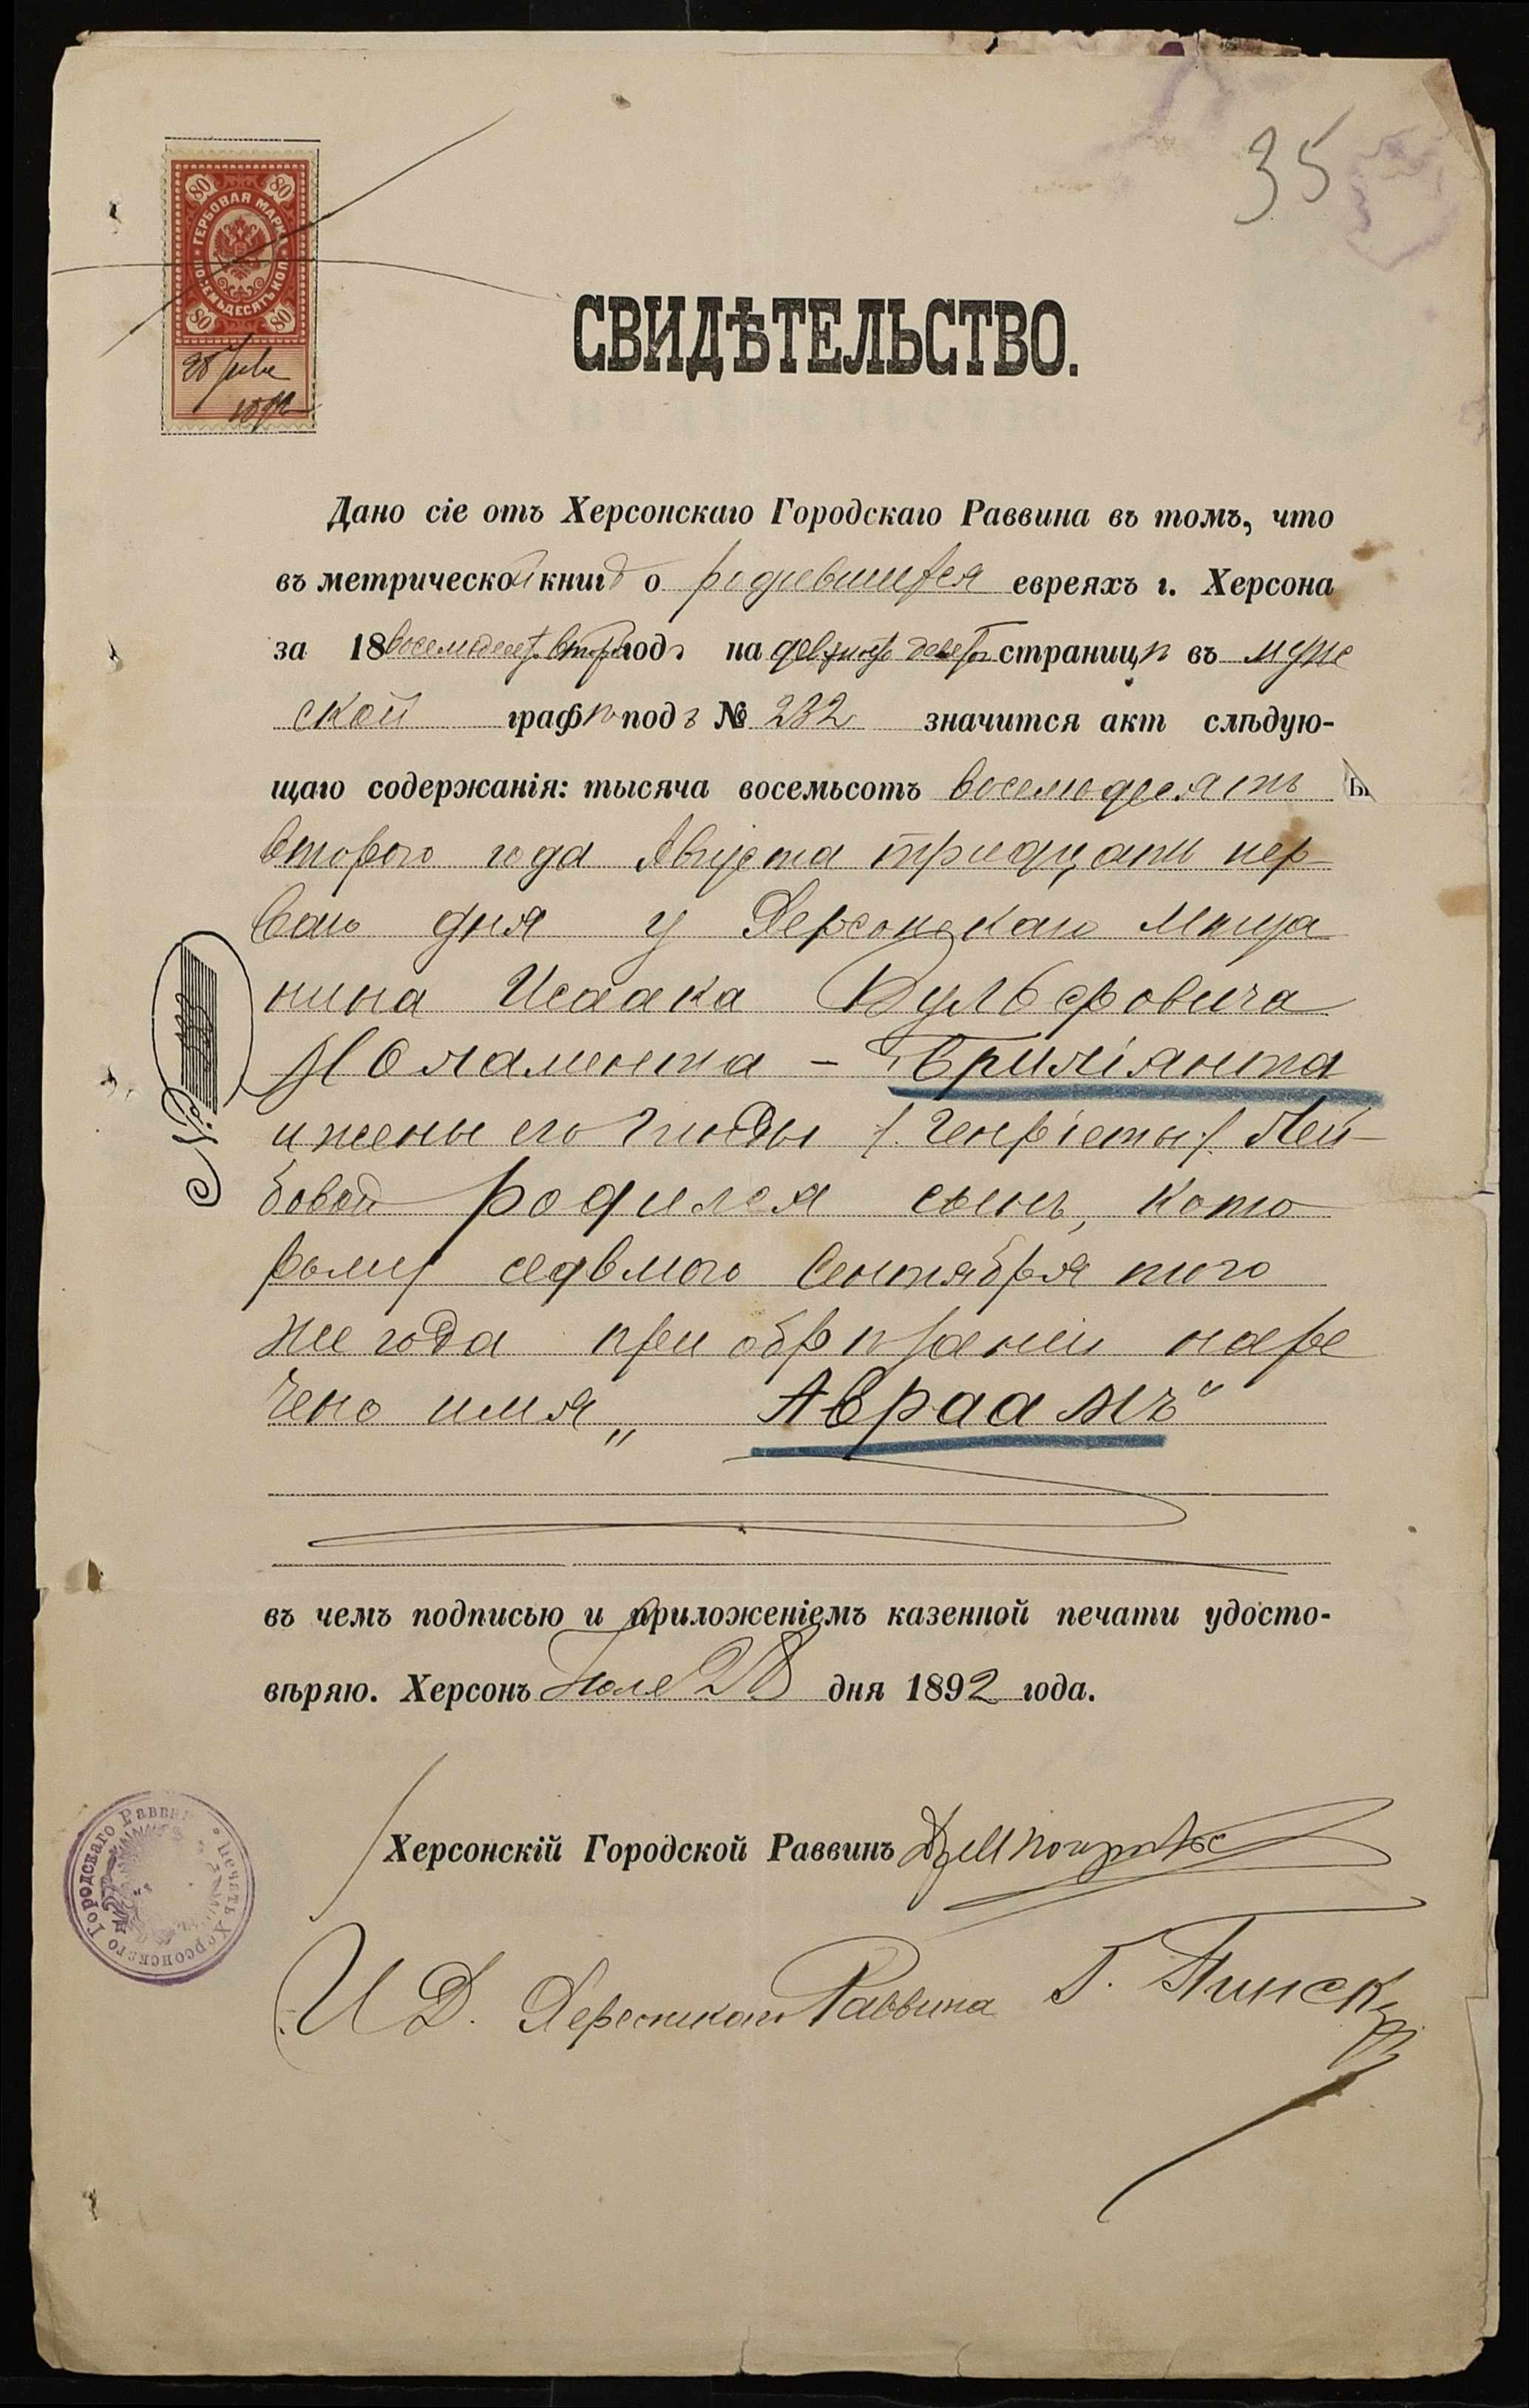 35
80 80
ГЕРБОВАЯ МАРКА
ВОСЕМЬДЕСЯТЪ КОП
80 80
28 Іюля
1892
СВИДѢТЕЛЬСТВО.
Дано сіе отъ Херсонскаго Городскаго Раввина въ томъ, что
въ метрической книгѣ о родившихся евреяхъ г. Херсона
за 18 восемьдесят. второй годъ на страницѣ въ муже
ской графѣ подъ № 232 значится акт слѣдую-
щаго содержанія: тысяча восемьсотъ восемьдесятъ
второго года Августа тридцать пер-
ваго дня у Херсонскаго мѣща
нина Исаака Вульфовича
Моламента - Бриліянта
и жены его /: Генріеты :/ Лей-
бовой родился сынъ, кото
рому седьмого Сентября того
же года при обрѣзаніи наре
чено имя „Авраамъ"
въ чемъ подписью и приложеніемъ казенной печати удосто-
вѣряю. Херсонъ Іюля 28 дня 1892 года.
Херсонскій Городской Раввинъ
И Д. Херсонскаго Раввина Г. Пинскій
Печать Херсонскаго Городскаго Раввина